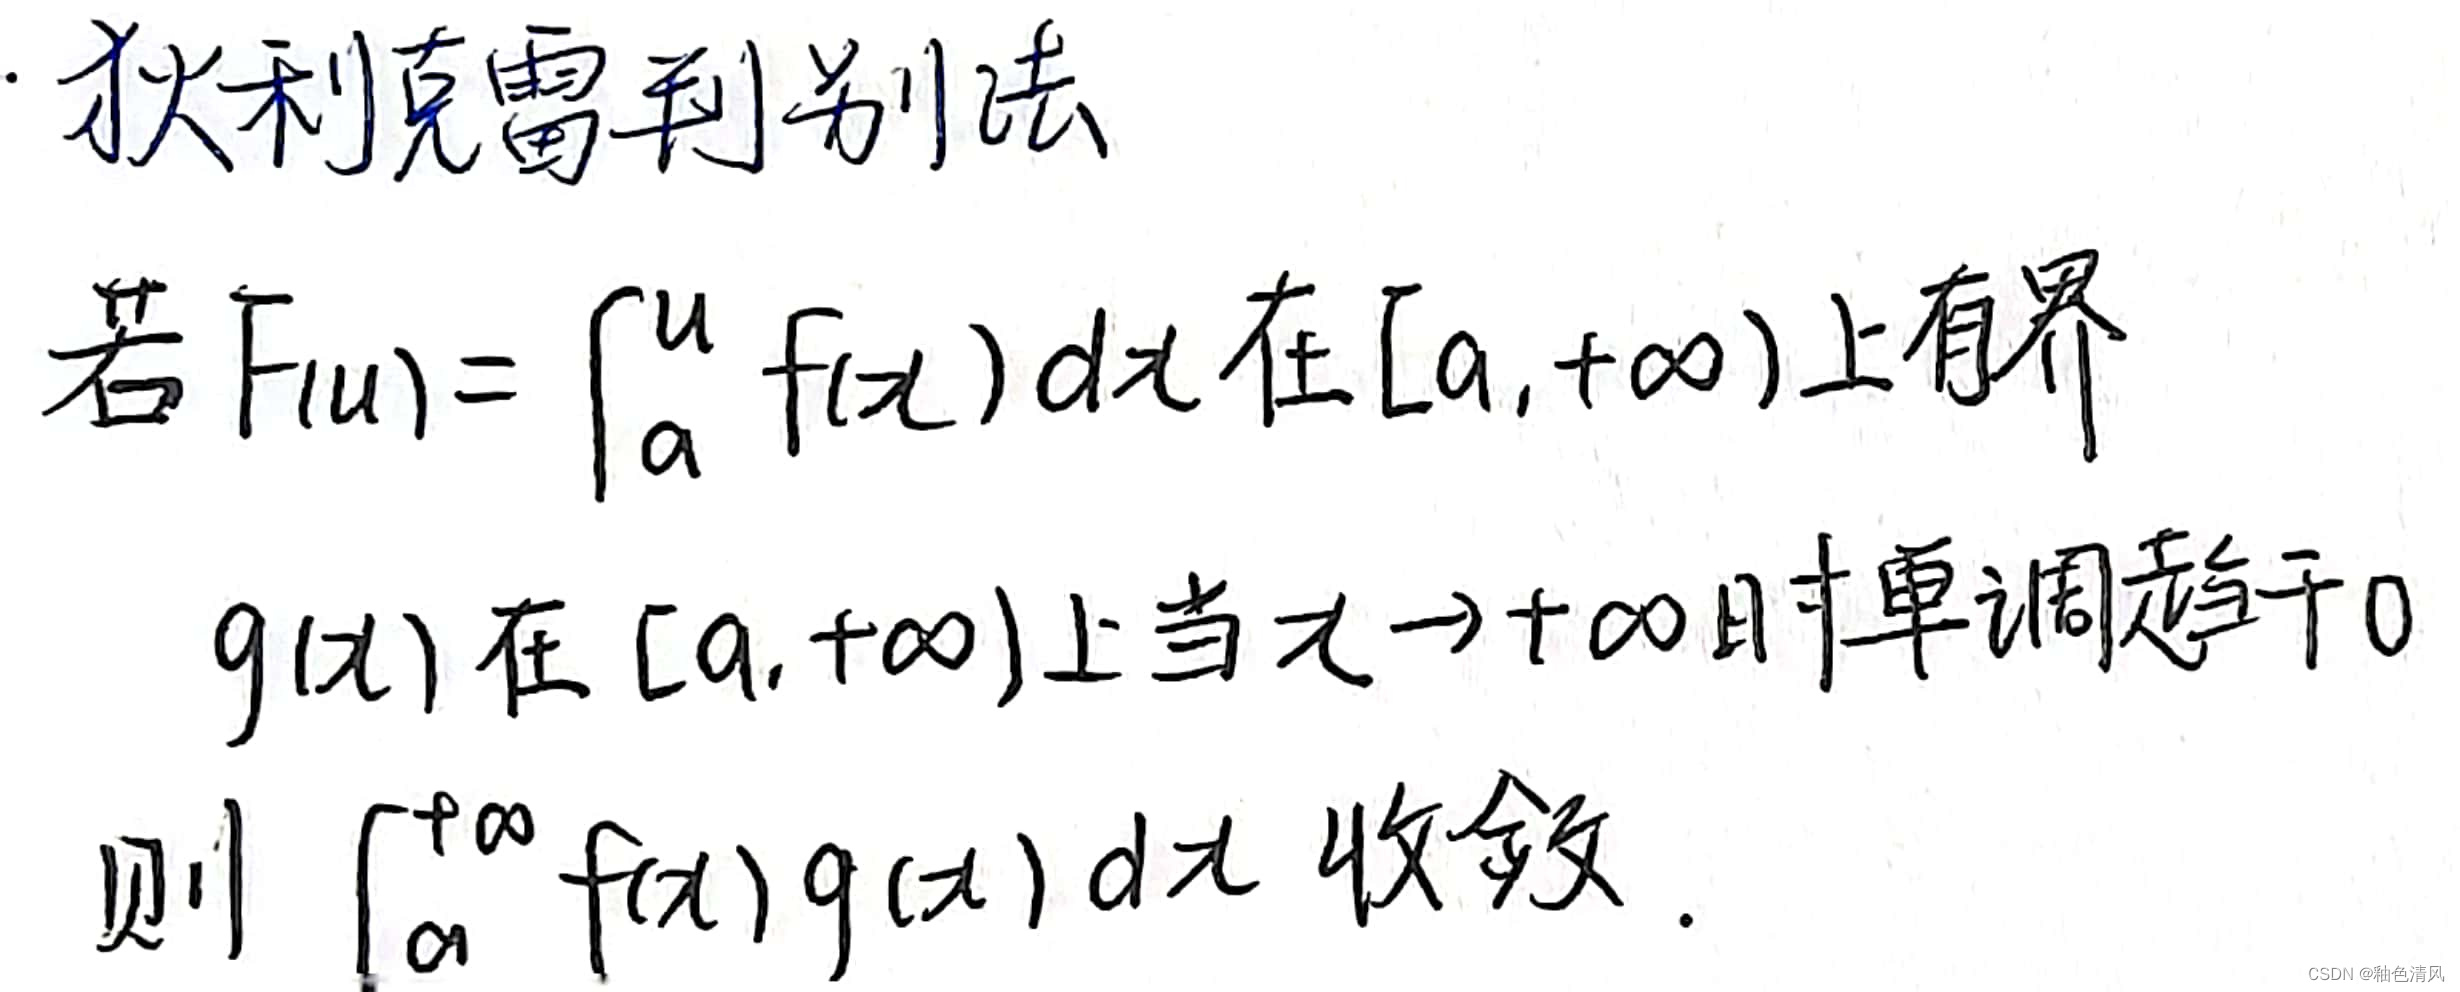 · 狄利克雷判别法
若 F(u) = ∫_a^u f(x) dx 在 [a, +∞) 上有界
g(x) 在 [a, +∞) 上当 x → +∞ 时单调趋于 0
则 ∫_a^{+∞} f(x) g(x) dx 收敛.
CSDN @釉色清风